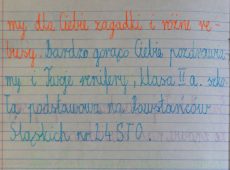 my dla Ciebie zagadki i różne re-
busy. Bardzo gorąco Ciebie pozdrawia-
my i Twoje renifery, klasa II a. szko-
ła podstawowa na Powstańców
Śląskich nr 24 STO.